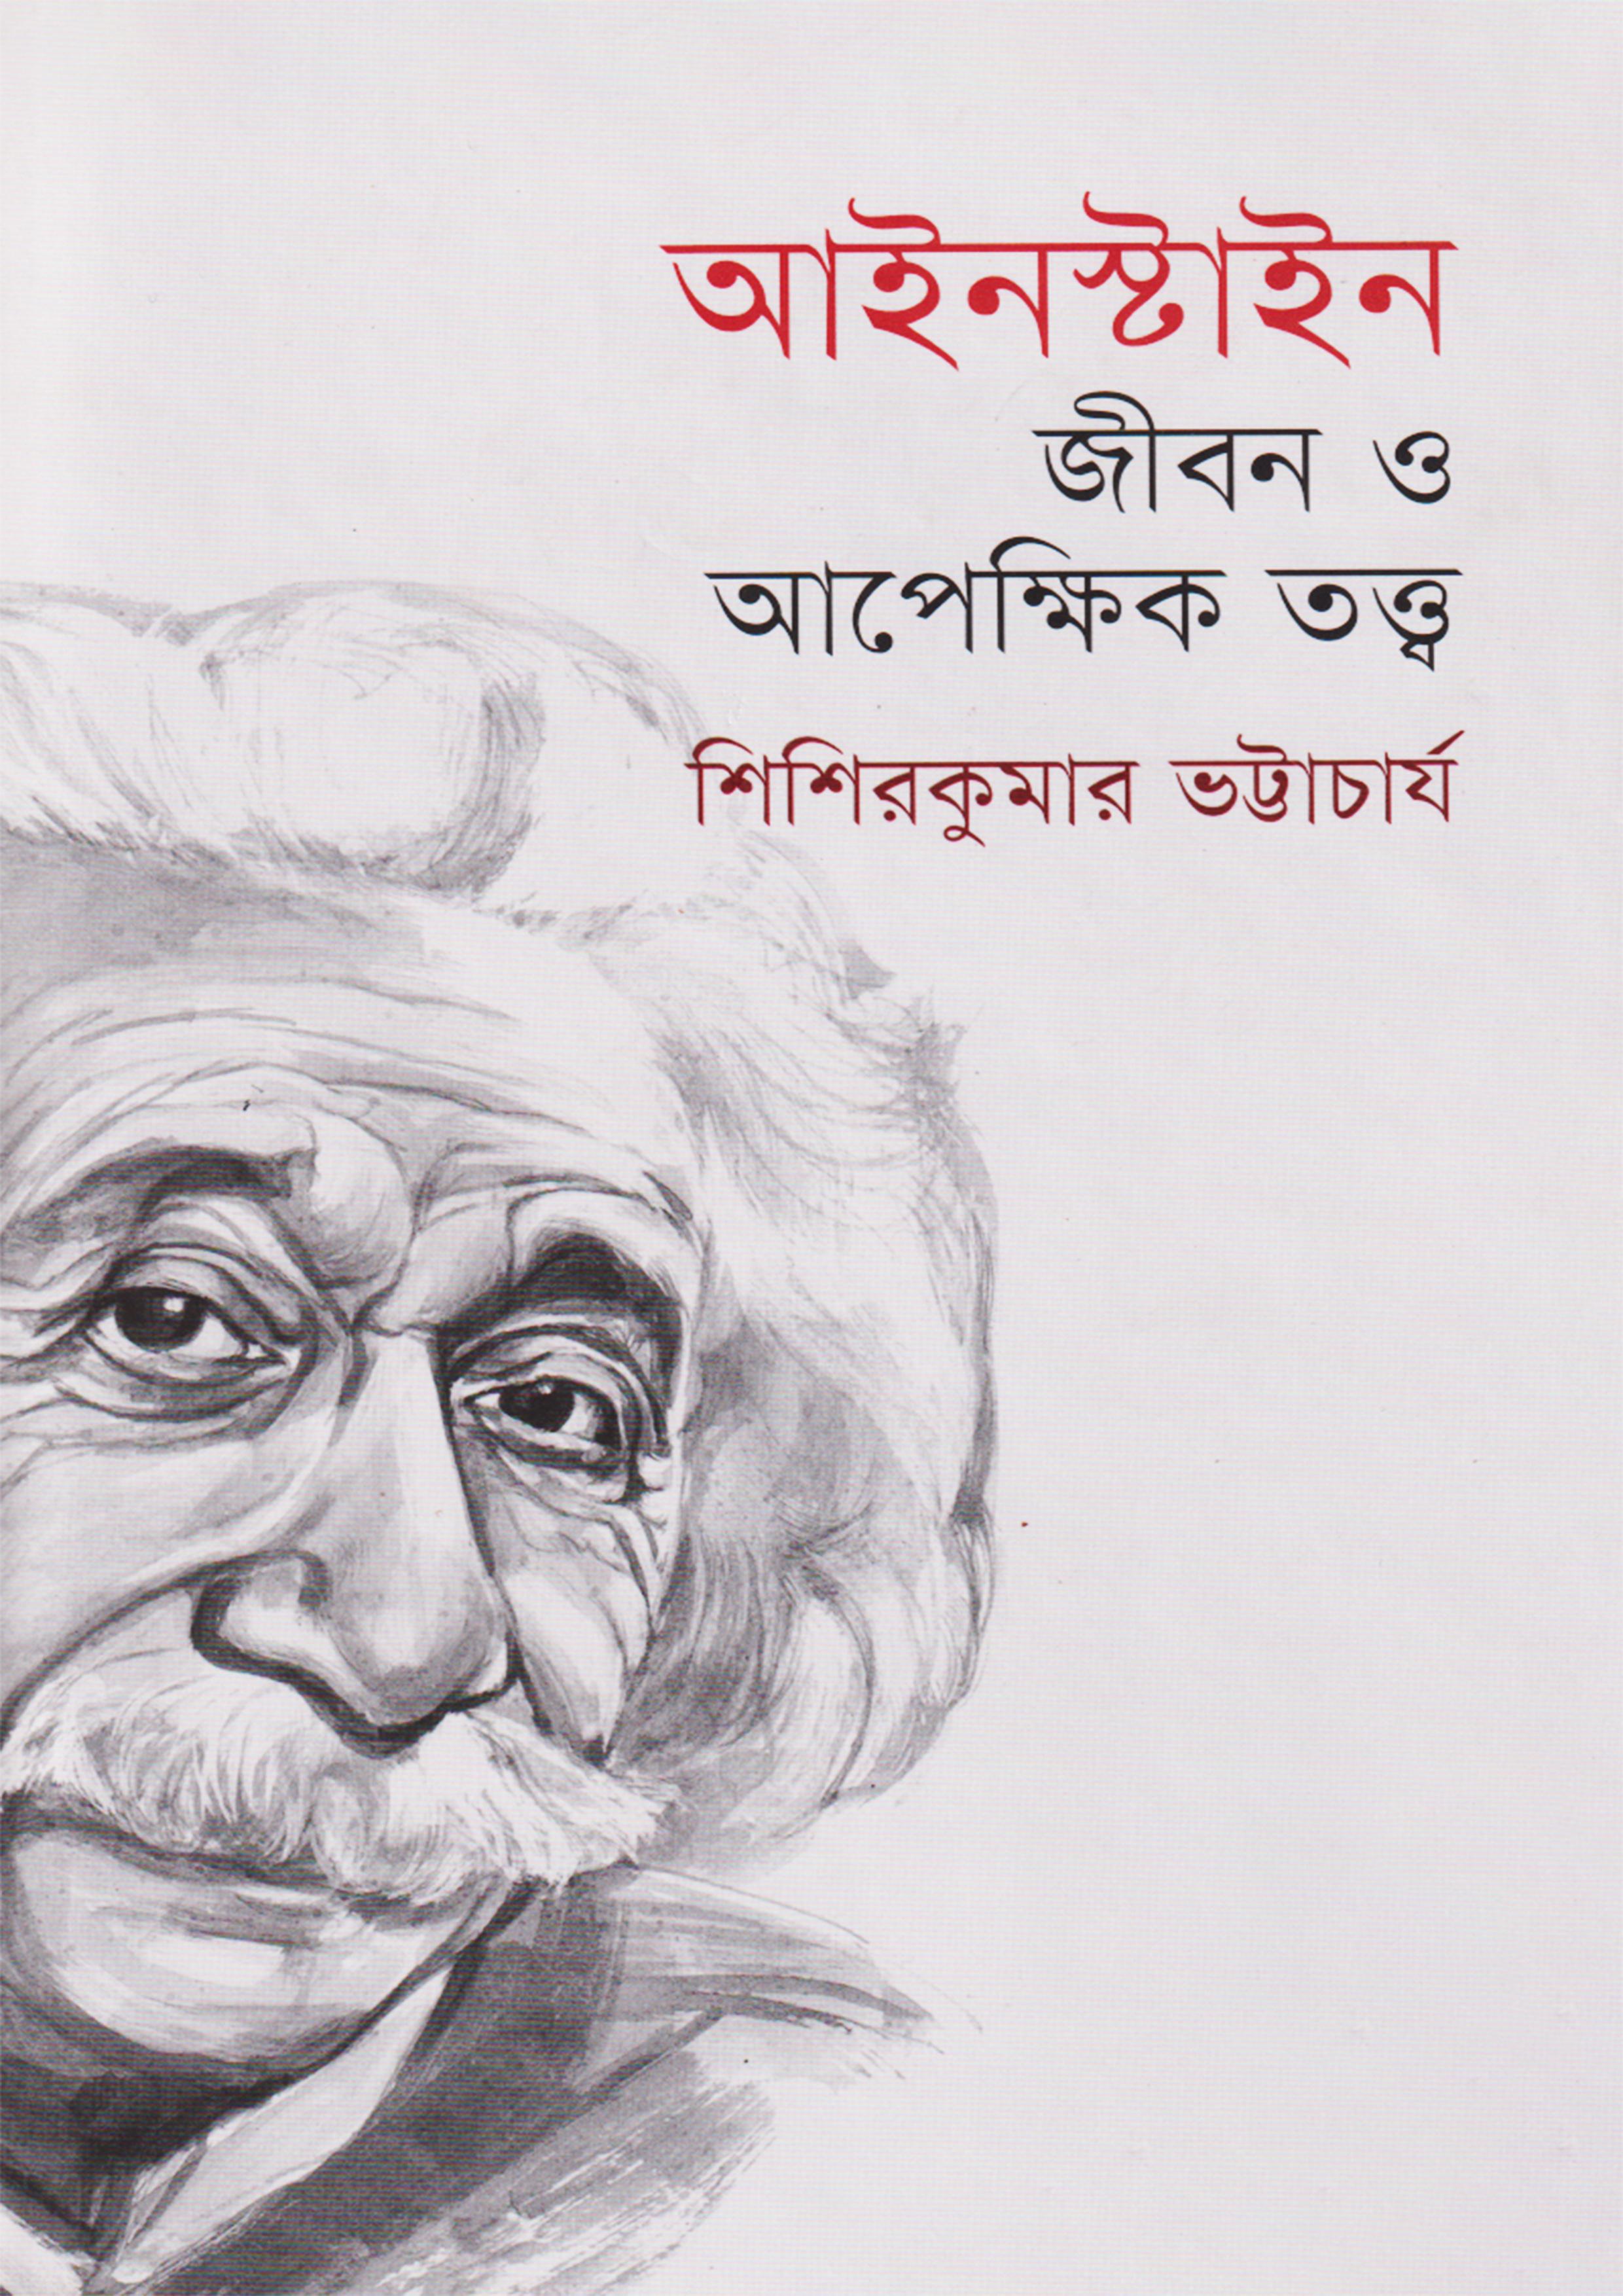 আইনস্টাইন
জীবন ও
আপেক্ষিক তত্ত্ব
শিশিরকুমার ভট্টাচার্য